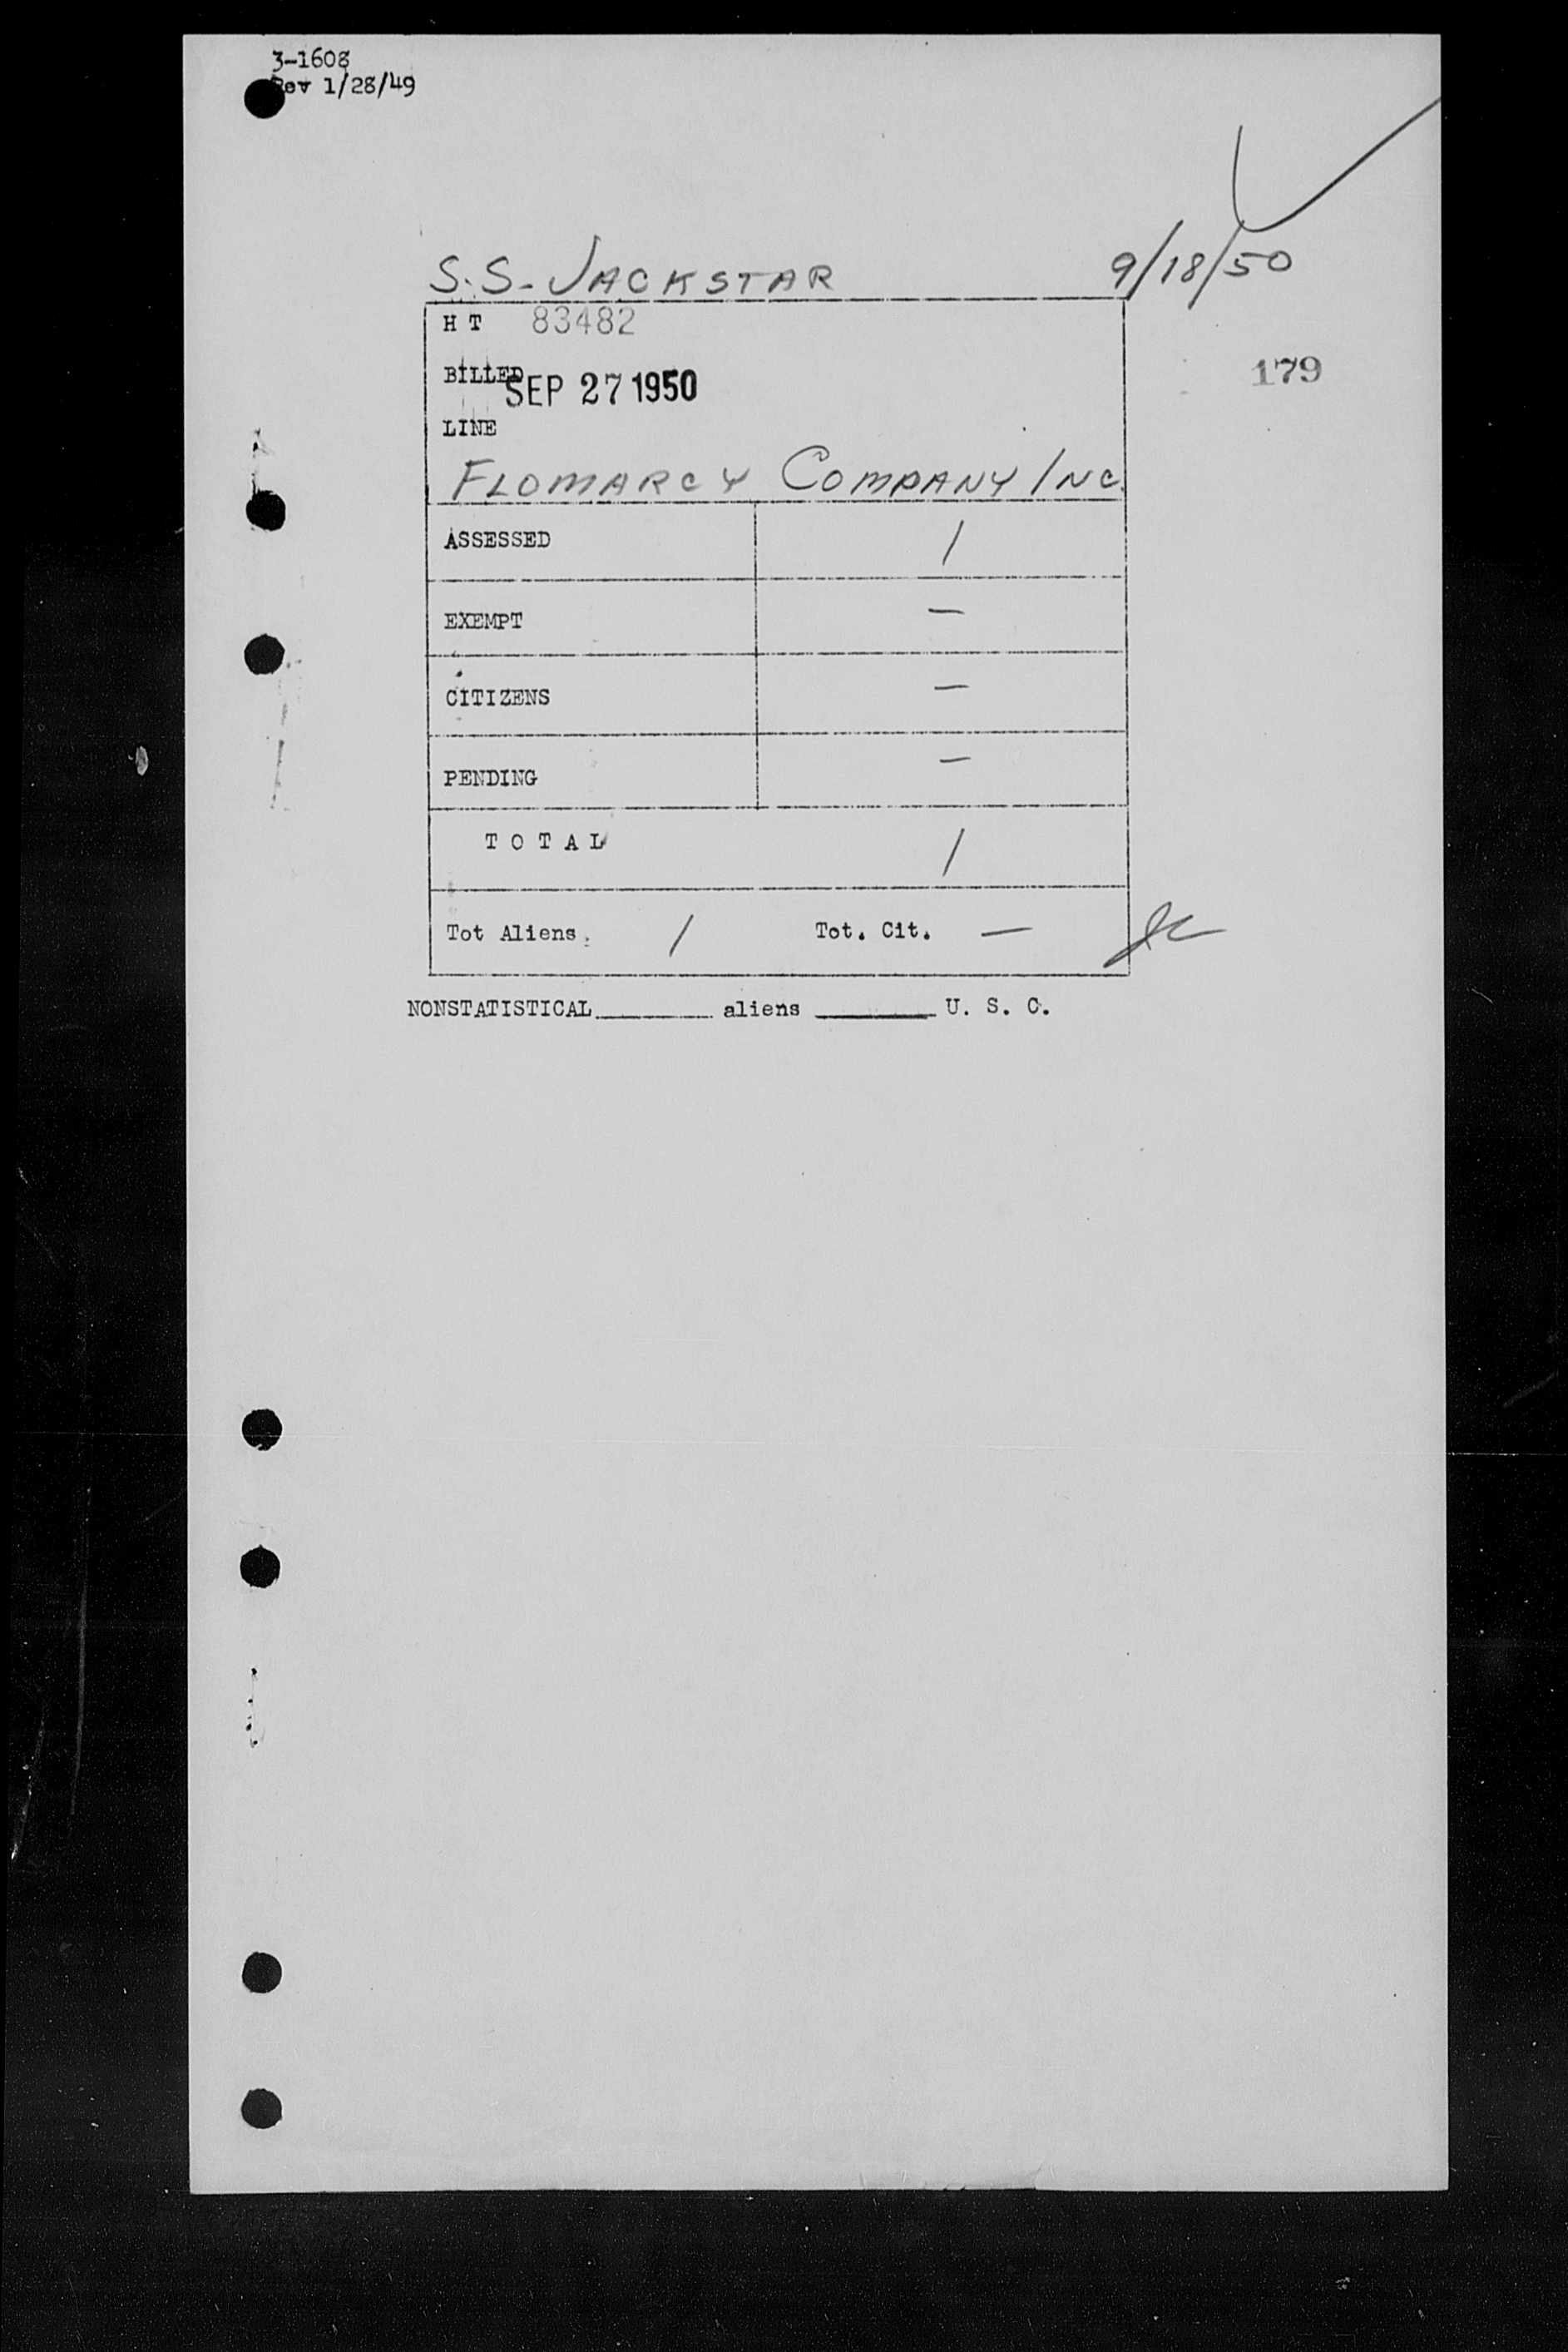 3-1608
Rev 1/28/49
S.S. JACKSTAR 9/18/50
HT 83482
BILLED SEP 27 1950
179
LINE
FLOMARCY COMPANY INC.
ASSESSED 1
EXEMPT —
CITIZENS —
PENDING —
TOTAL 1
Tot Aliens 1 Tot. Cit. —
NONSTATISTICAL________ aliens ________ U. S. C.